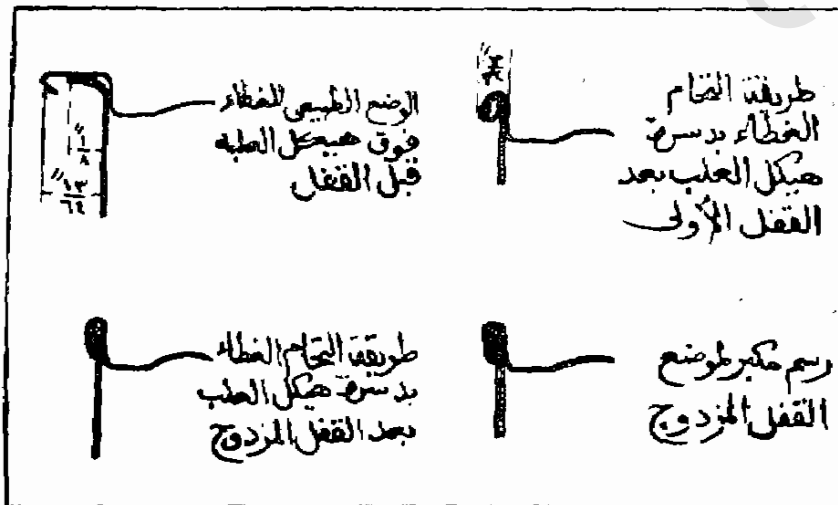 طريقة التحام
الغطاء بدسرة
هيكل العلب بعد
القفل الأولى
الوضع الطبيعى للغطاء
فوق هيكل العلبه
قبل القفل
١/٨"
١٣/٦٤"
رسم مكبر لموضع
القفل المزدوج
طريقة التحام الغطاء
بدسرة هيكل العلب
بعد القفل المزدوج